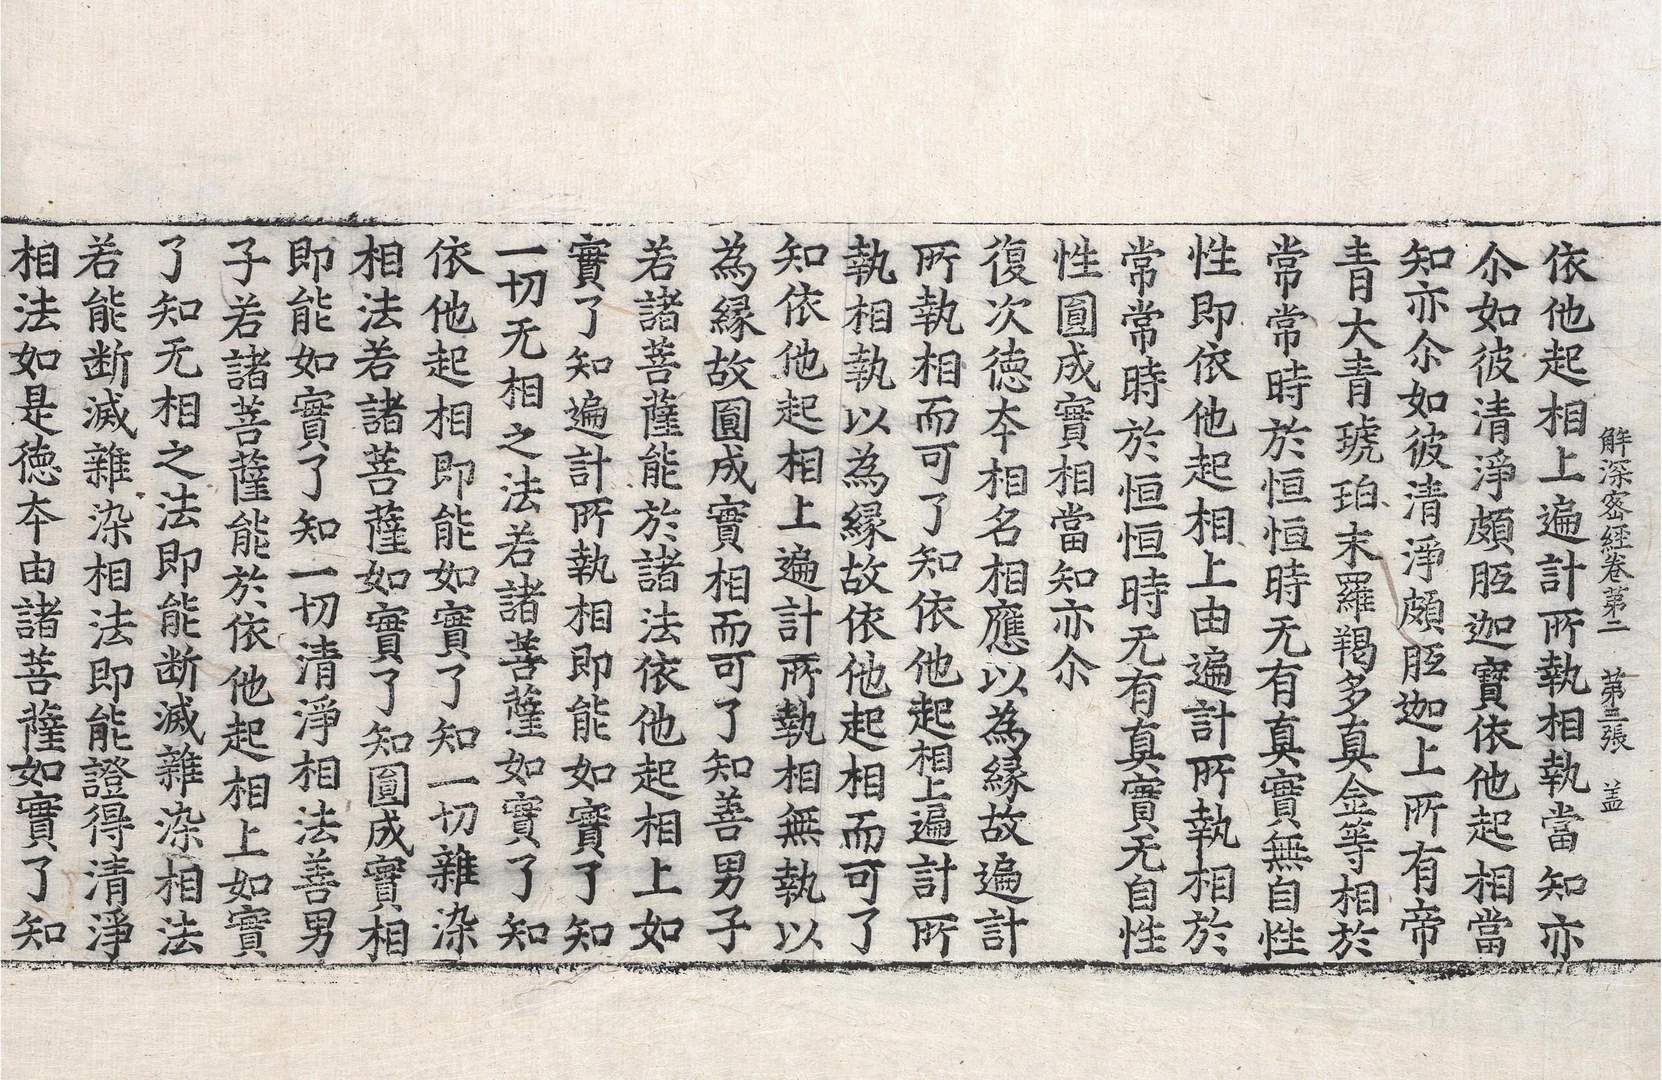 解深密經卷第二　第三張　盖
依他起相上遍計所執相執當知亦
尒如彼清淨頗胝迦寶依他起相當
知亦尒如彼清淨頗胝迦上所有帝
青大青琥珀末羅羯多真金等相於
常常時於恒恒時无有真實無自性
性即依他起相上由遍計所執相於
常常時於恒恒時无有真實无自性
性圓成實相當知亦尒
復次徳夲相名相應以為縁故遍計
所執相而可了知依他起相上遍計所
執相執以為縁故依他起相而可了
知依他起相上遍計所執相無執以
為縁故圓成實相而可了知善男子
若諸菩薩能於諸法依他起相上如
實了知遍計所執相即能如實了知
一切无相之法若諸菩薩如實了知
依他起相即能如實了知一切雜染
相法若諸菩薩如實了知圓成實相
即能如實了知一切清淨相法善男
子若諸菩薩能於依他起相上如實
了知无相之法即能断滅雜染相法
若能断滅雜染相法即能證得清淨
相法如是徳夲由諸菩薩如實了知